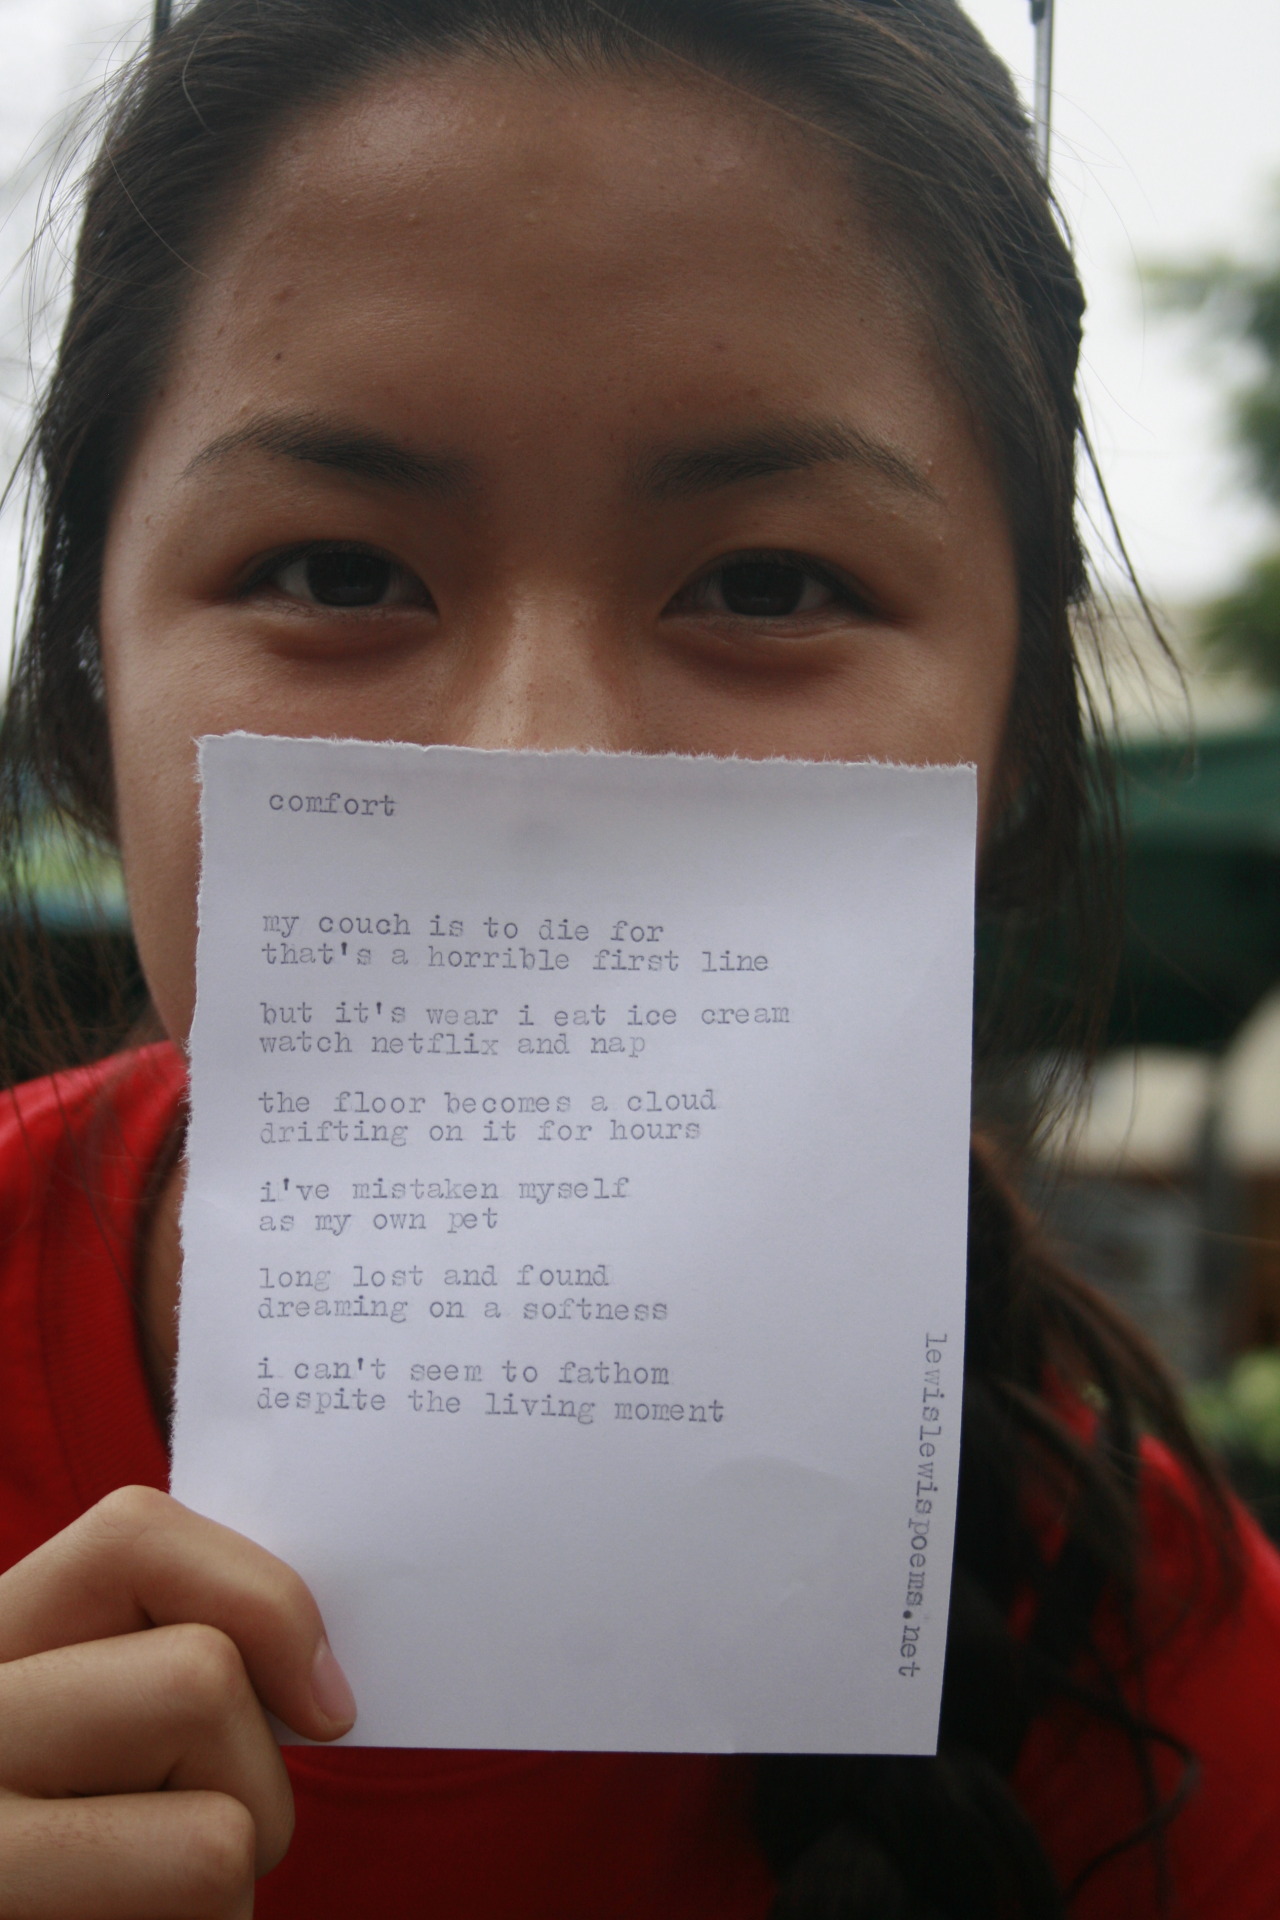 comfort
my couch is to die for
that's a horrible first line
but it's wear i eat ice cream
watch netflix and nap
the floor becomes a cloud
drifting on it for hours
i've mistaken myself
as my own pet
long lost and found
dreaming on a softness
i can't seem to fathom
despite the living moment
lewislewispoems.net